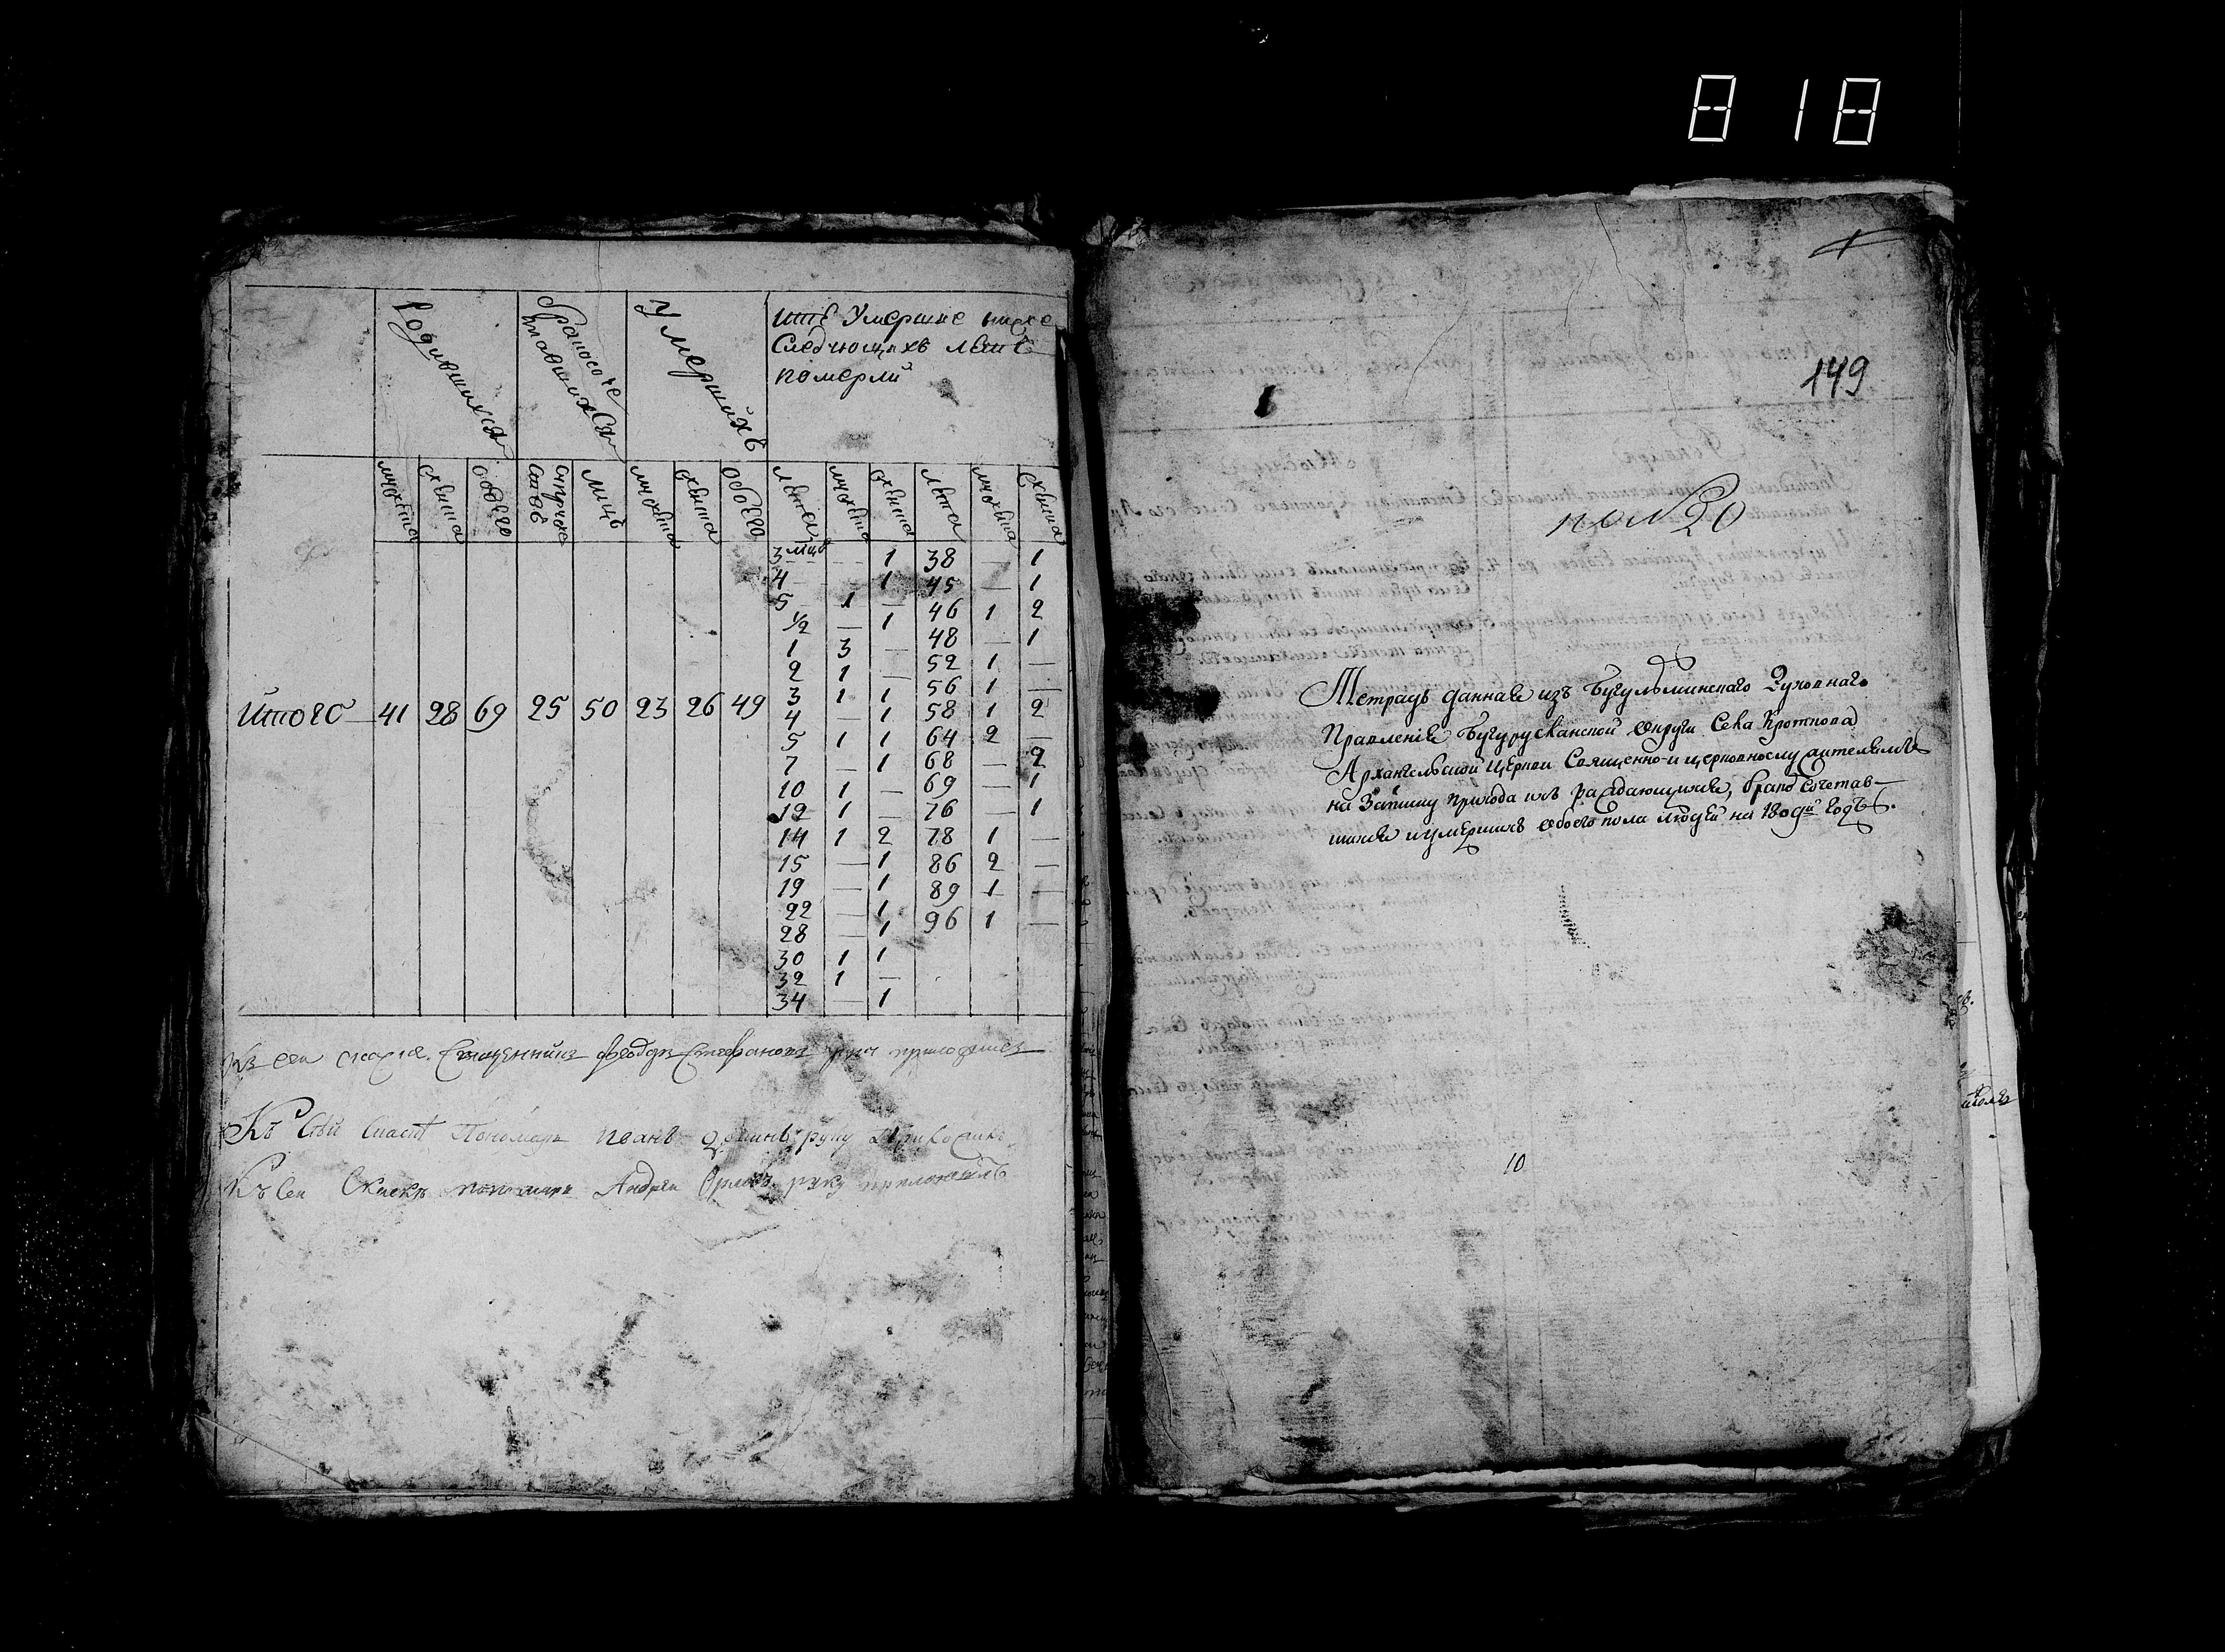 818
Родившихся
бракосоче
тавшихся
Умершихъ
итѣ Умершие ниже
Следующихъ летѣ
померли
мужеска
женска
обоего
супруже
ствъ
лицъ
мужеска
женска
обоего
лета
мужеска
женска
лета
мужеска
женска
3 мцъ — 1 38 — 1
4 — 1 45 — 1
5 1 — 46 1 2
1/2 — 1 48 — 1
1 3 — 52 1 —
2 1 — 56 1 —
3 1 1 58 1 2
4 — 1 64 2 —
5 1 1 68 — 2
7 — 1 69 — 1
10 1 — 76 — 1
12 1 — 78 1 —
14 1 2 86 2 —
15 — 1 89 1 —
19 — 1 96 1 —
22 — 1
28 — 1
30 1 1
32 1 —
34 — 1
Итого 41 28 69 25 50 23 26 49
Къ сей Священникъ Феодоръ Стефановъ руку приложилъ
Къ сей Пономарь Иванъ руку приложилъ
Къ сей Скаске пономарь Андреи Орловъ руку приложилъ
149
по N 20
Тетрадь данная изъ Бугульминскаго Духовнаго
Правления Бугурусланской округи Села Кроткова
Архангельской Церкви Священно-и церковнослужителямъ
на Записку прихода ихъ раждающихся, бракосочетав-
шихся и умершихъ обоего пола людей на 180 годъ.
10